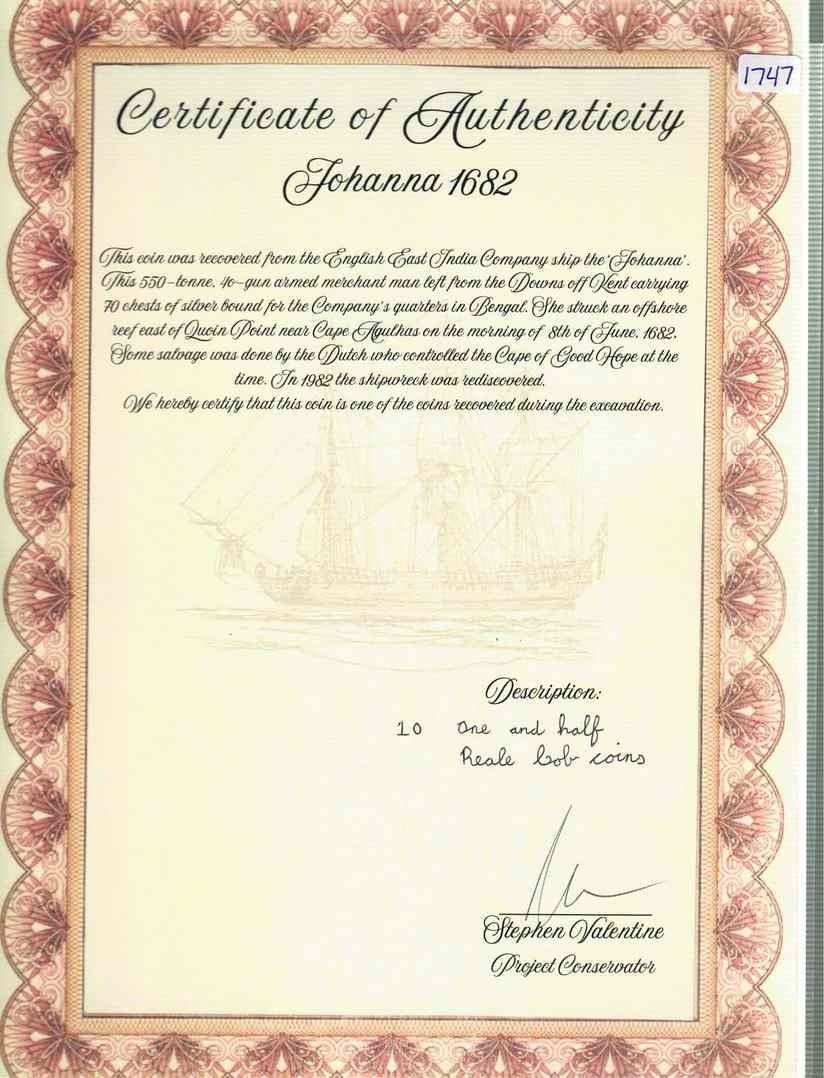 1747
Certificate of Authenticity
Johanna 1682
This coin was recovered from the English East India Company ship the 'Johanna'.
This 550-tonne, 40-gun armed merchant man left from the Downs off Kent carrying
70 chests of silver bound for the Company's quarters in Bengal. She struck an offshore
reef east of Quoin Point near Cape Agulhas on the morning of 8th of June, 1682.
Some salvage was done by the Dutch who controlled the Cape of Good Hope at the
time. In 1982 the shipwreck was rediscovered.
We hereby certify that this coin is one of the coins recovered during the excavation.
Description:
10 One and half
Reale Cob coins
Stephen Valentine
Project Conservator